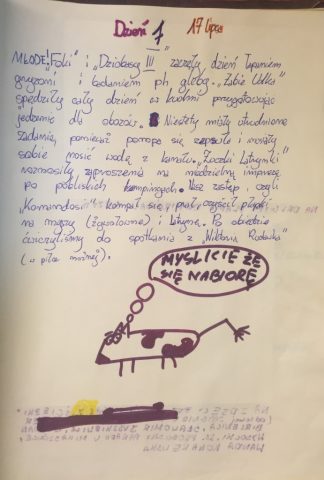 Dzień 7 17 lipca
MŁODE! "Foki" i "Dziobasy III" zaczęły dzień łapaniem
gryzoni i badaniem ph gleby. "Żabie Udka"
spędziły cały dzień w kuchni przygotowując
jedzenie dla obozów. Niestety miały utrudnione
zadanie, ponieważ pompa się zepsuła i musiały
sobie nosić wodę z kanału.
roznosiły zaproszenia na niedzielną imprezę
po pobliskich kempingach. Nasz zastęp, czyli
"Komandosi" kąpał się, prał, czyścił
na myszy (żywołowne) i latrynę. Po obiedzie
ćwiczyliśmy do spotkania z "Wiktorią Rudawka"
(w piłce nożnej).
MYŚLICIE ŻE
SIĘ NABIORĘ